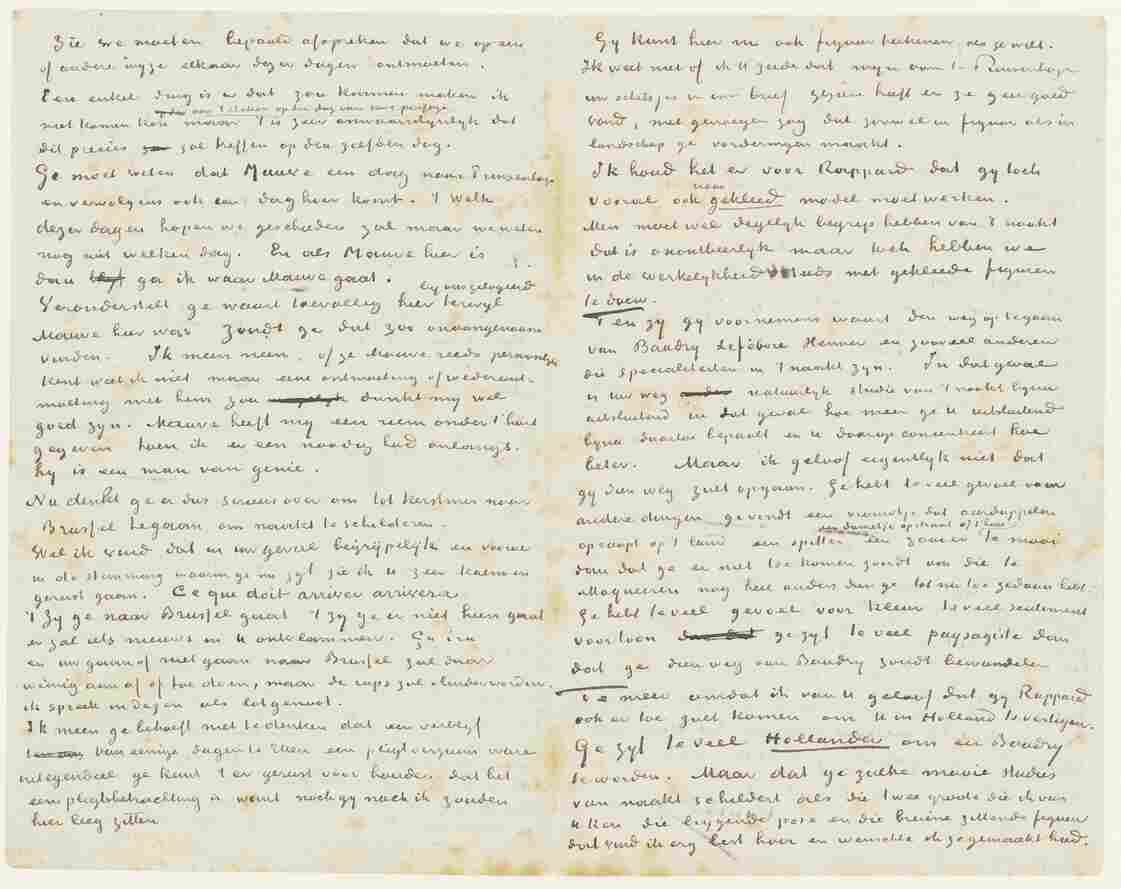 Zie we moeten bepaald afspreken dat we op een
of andere wijze elkaar dezer dagen ontmoeten.
Een enkel ding is er dat zou kunnen maken ik
niet komen kon maar 't is zeer onwaarschijnlijk dat
op den dag van uwe passage
dit precies zal treffen op den zelfden dag.
Ge moet weten dat Mauve een dag naar Prinsenhage
en vervolgens ook een dag hier komt. 't Welk
dezer dagen hopen we geschieden zal maar we weten
nog niet welken dag. En als Mauve hier is
dan blijf ga ik waar Mauve gaat.
bij ons gelogeerd
Veronderstelt ge waart toevallig hier terwijl
Mauve hier was zoudt ge dat zoo onaangenaam
vinden. Ik meen neen, of ge Mauve reeds persoonlijk
kent weet ik niet maar eene ontmoeting of wederont-
moeting met hem zou dunkt mij wel
goed zijn. Mauve heeft mij een riem onder 't hart
gegeven toen ik er een noodig had onlangs.
hij is een man van genie.
Nu denkt ge er dus serieus over om tot Kerstmis naar
Brussel te gaan om naakt te schilderen.
Wel ik vind dat in uw geval begrijpelijk en vooral
in de stemming waarin ge nu zijt zie ik u zeer kalm en
gerust gaan. Ce que doit arriver arrivera
't Zij ge naar Brussel gaat 't zij ge er niet heen gaat
er zal iets nieuws in u ontvlammen.
en uw gaan of niet gaan naar Brussel zal daar
weinig aan af of toe doen, maar de rups zal vlinder worden.
ik spreek in dezen als lotgenoot.
Ik meen ge behoeft niet te denken dat een verblijf
van eenige dagen te Etten een pligtverzuim ware
integendeel ge kunt 't er gerust voor houden dat het
een pligtsbetrachting is want noch gij noch ik zouden
hier leeg zitten
Gij kunt hier nu ook figuur teekenen, als ge wilt.
Ik weet niet of ik U zeide dat mijn oom te Prinsenhage
uw schetsjes in uw brief gezien heeft en ze zeer goed
vond, met genoegen zag dat zoowel in figuur als in
landschap ge vorderingen maakt.
Ik houd het er voor Rappard dat gij toch
naar
vooral ook gekleed model moet werken.
Men moet wel degelijk begrip hebben van 't naakt
dat is onontbeerlijk maar toch hebben we
in de werkelijkheid steeds met gekleede figuren
te doen.
't en zij gij voornemens waart den weg op te gaan
van Baudry Lefebvre Henner en zooveel anderen
die specialiteiten in 't naakt zijn. In dat geval
is uw weg natuurlijk studie van 't naakt bijna
uitsluitend in dat geval hoe meer ge u uitsluitend
bijna daartoe bepaalt en u daarop concentreert hoe
beter. Maar ik geloof eigentlijk niet dat
gij dien weg zult opgaan. Ge hebt te veel gevoel voor
andere dingen ge vindt een vrouwtje dat aardappelen
een dametje op straat of 't haar
opraapt op 't land een spitter een zaaier te mooi
dan dat ge er niet toe komen zoudt om die te
attaqueren nog heel anders dan ge tot nu toe gedaan hebt.
Ge hebt te veel gevoel voor kleur te veel sentiment
voor toon ge zijt te veel paysagiste dan
dat ge dien weg van Baudry zoudt bewandelen
Te meer omdat ik van U geloof dat gij Rappard
ook er toe zult komen om U in Holland te vestigen.
Ge zijt te veel Hollander om een Baudry
te worden. Maar dat ge zulke mooie studies
van naakt schildert als die twee groote die ik van
U ken die liggende pose en die bruine zittende figuur
dat vind ik erg best hoor en wenschte ik ze gemaakt had.